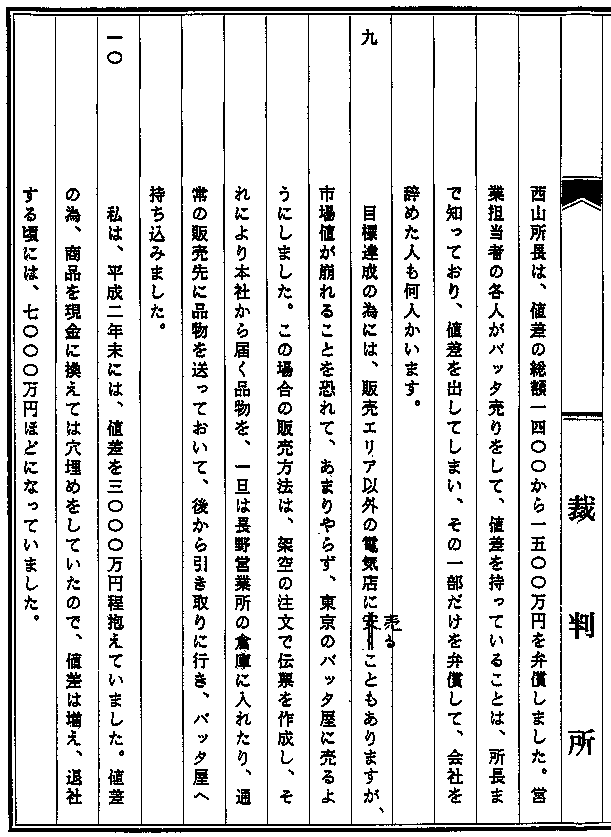 裁判所
西山所長は、値差の総額一四〇〇から一五〇〇万円を弁償しました。営
業担当者の各人がバッタ売りをして、値差を持っていることは、所長ま
で知っており、値差を出してしまい、その一部だけを弁償して、会社を
辞めた人も何人かいます。
九　目標達成の為には、販売エリア以外の電気店に売ることもありますが、
市場値が崩れることを恐れて、あまりやらず、東京のバッタ屋に売るよ
うにしました。この場合の販売方法は、架空の注文で伝票を作成し、そ
れにより本社から届く品物を、一旦は長野営業所の倉庫に入れたり、通
常の販売先に品物を送っておいて、後から引き取りに行き、バッタ屋へ
持ち込みました。
一〇　私は、平成二年末には、値差を三〇〇〇万円程抱えていました。値差
の為、商品を現金に換えては穴埋めをしていたので、値差は増え、退社
する頃には、七〇〇〇万円ほどになっていました。